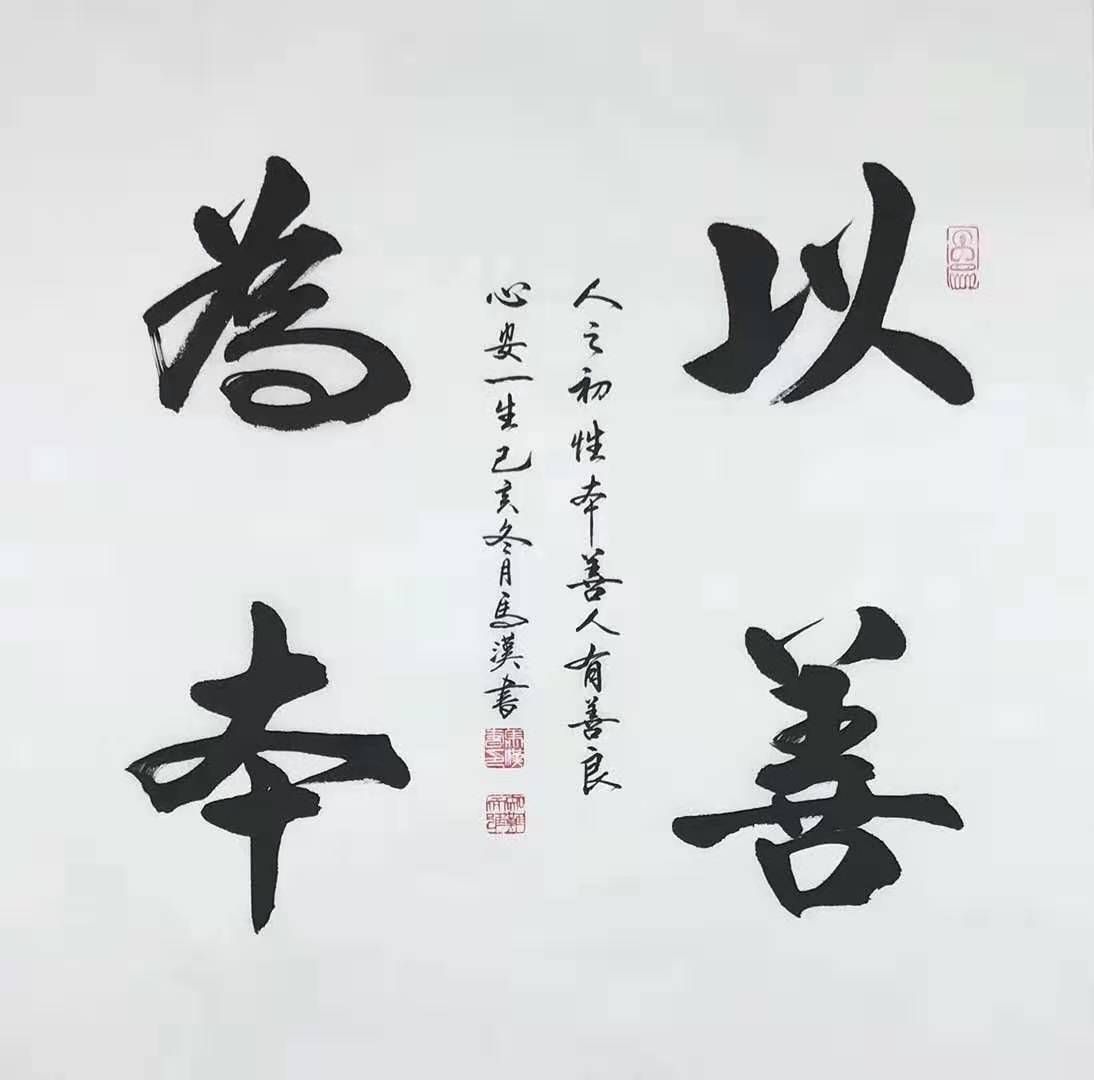 以善
為本
人之初性本善人有善良
心安一生己亥冬月馬漢書